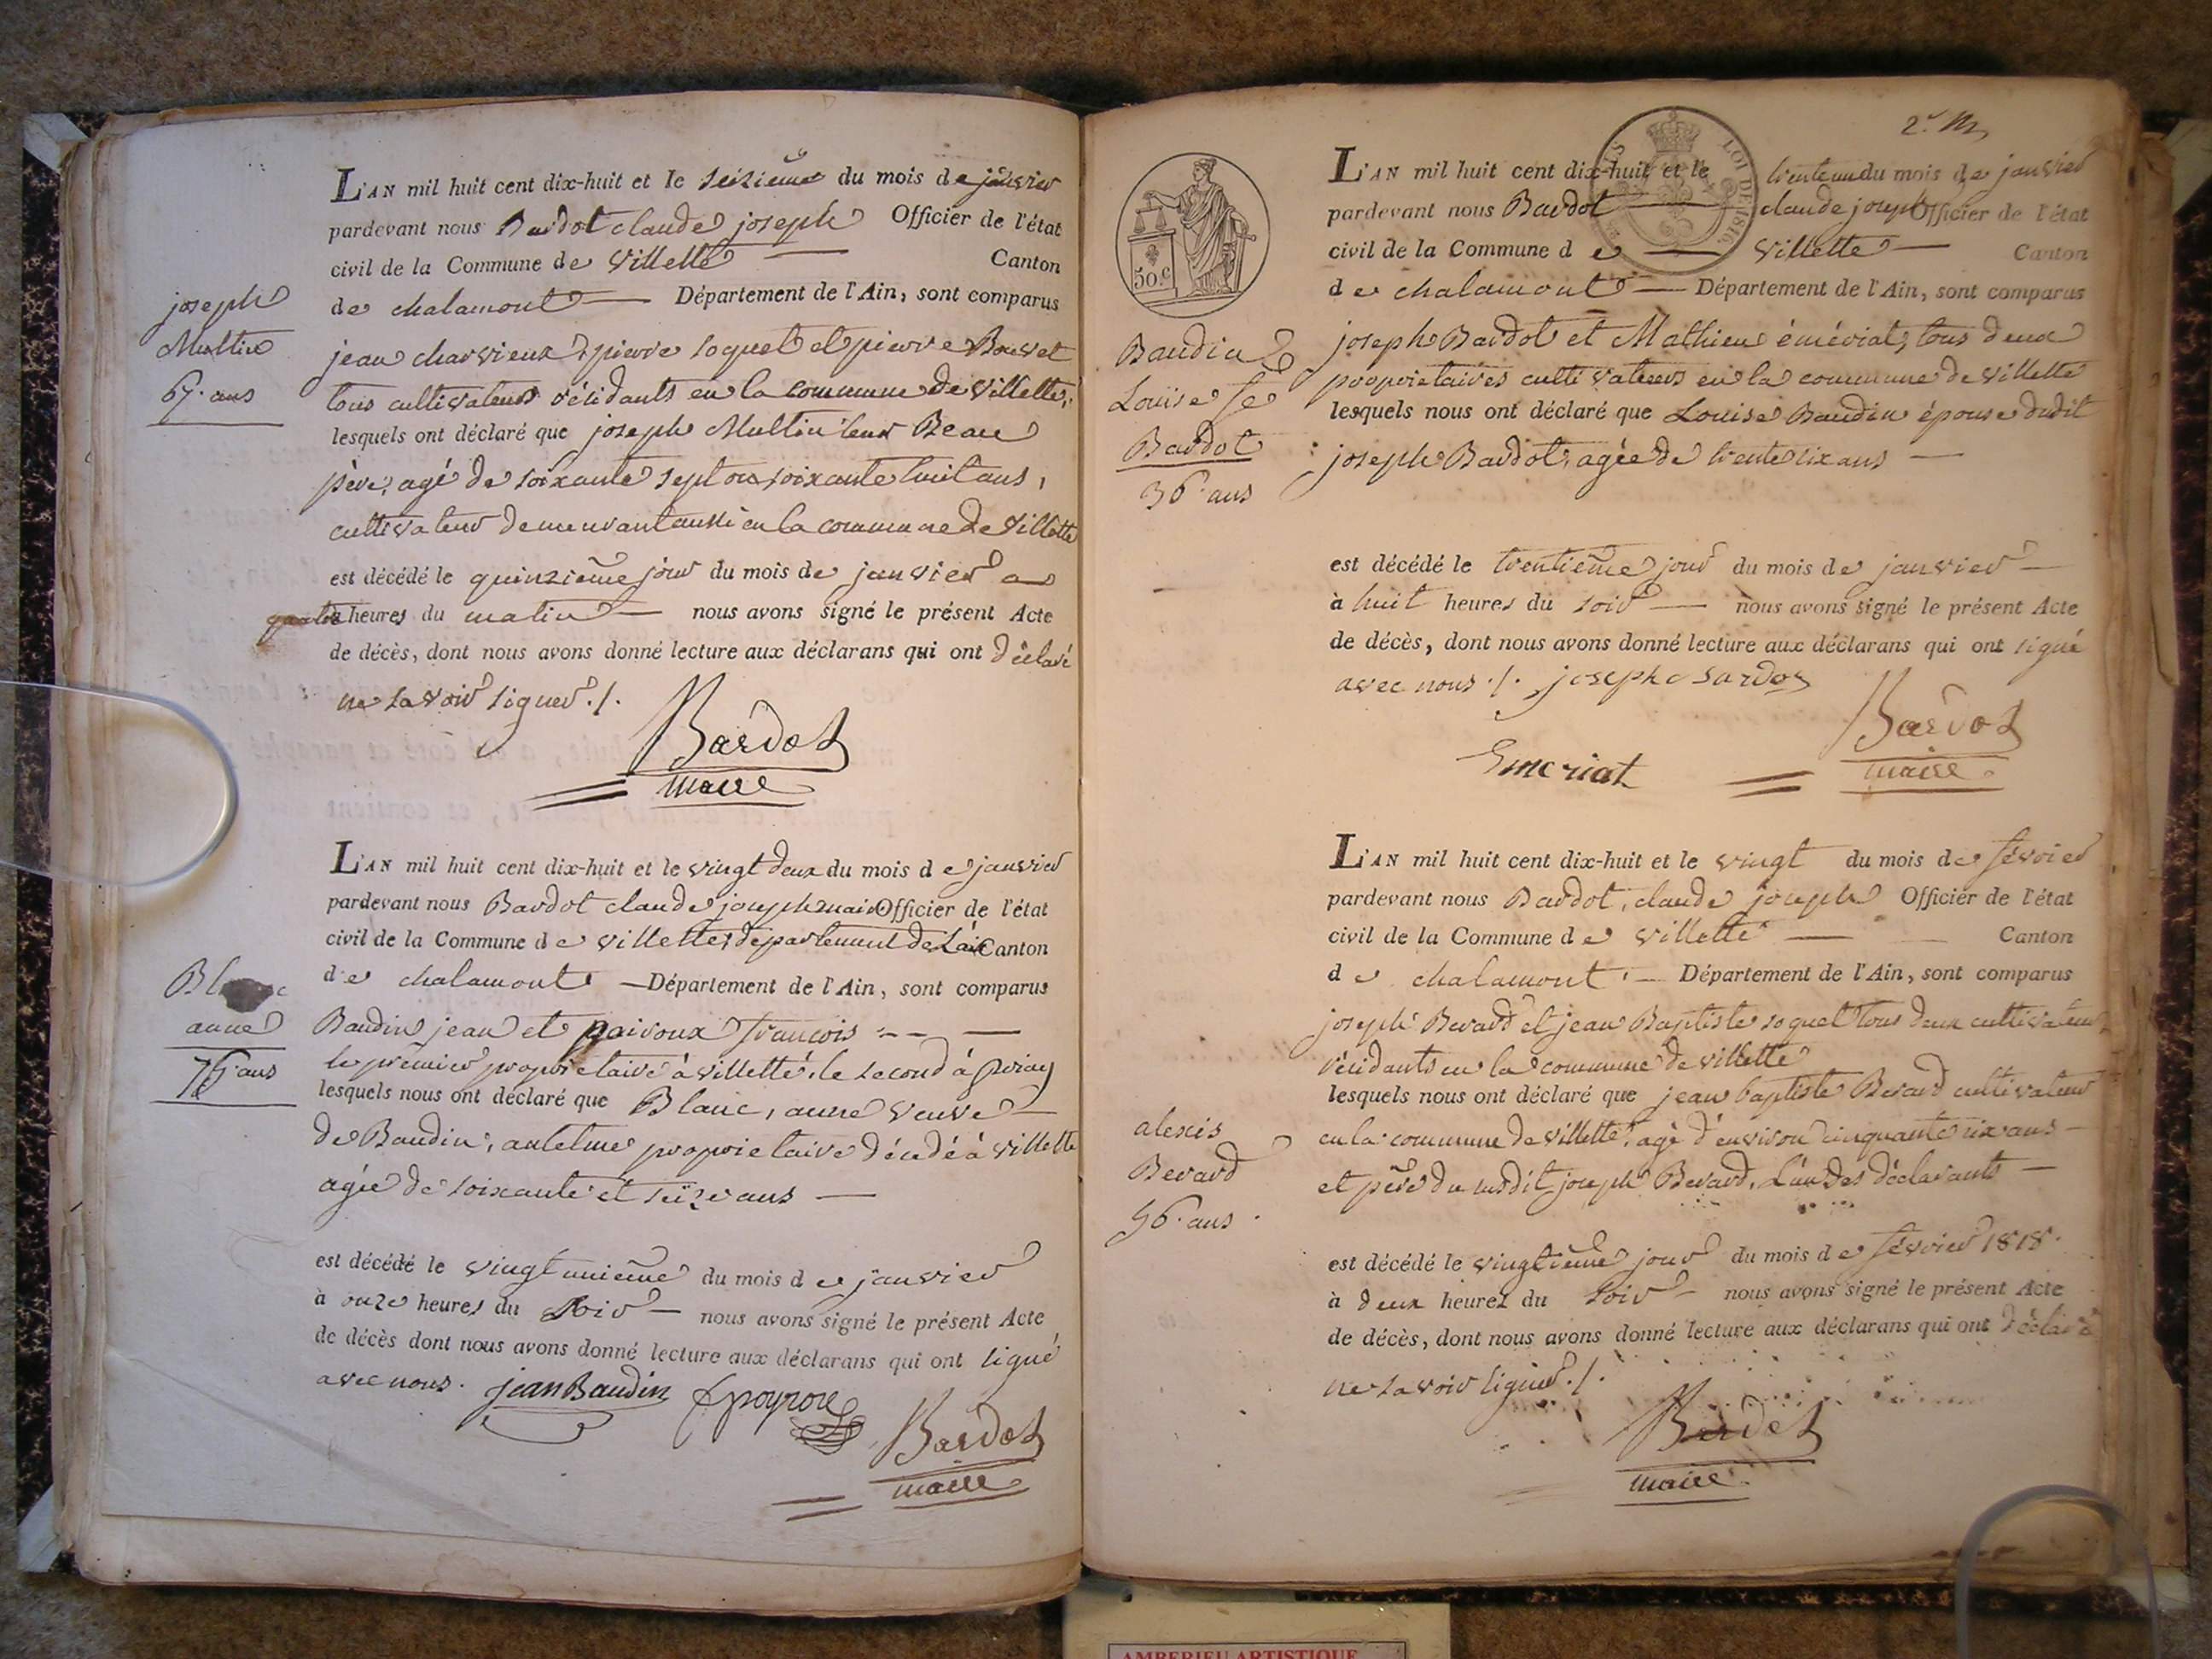 joseph
Multin
67. ans
L'AN mil huit cent dix-huit et le seizieme du mois de janvier
pardevant nous Bardot claude joseph Officier de l'état
civil de la Commune de villette Canton
de chalamont Département de l'Ain, sont comparus
jean charvieux, pierre soquet et pierre Bouvet
tous cultivateurs résidants en la commune de villette,
lesquels ont déclaré que joseph Multin leur Beau
père, agé de soixante sept ou soixante huit ans,
cultivateur demeurant aussi en la commune de villette
est décédé le quinzième jour du mois de janvier a
quatre heures du matin nous avons signé le présent Acte
de décès, dont nous avons donné lecture aux déclarans qui ont déclaré
ne savoir signer ./.
Bardot
maire
Blanc
anne
76 ans
L'AN mil huit cent dix-huit et le vingt deux du mois de janvier
pardevant nous Bardot claude joseph maire Officier de l'état
civil de la Commune de villette, departement de L'ain Canton
de chalamont Département de l'Ain, sont comparus
Baudin jean et françois
le premier proprietaire à villette, le second à priay
lesquels nous ont déclaré que Blanc, anne veuve
de Baudin, antelme proprietaire décédé à villette
agée de soixante et seize ans
est décédé le vingt unième du mois de janvier
à onze heures du soir nous avons signé le présent Acte
de décès dont nous avons donné lecture aux déclarans qui ont signé
avec nous. jean Baudin
Bardot
maire
2.
50.c
LOI DE 1816
Baudin
Louise fe
Bardot
36. ans
L'AN mil huit cent dix-huit et le trente un du mois de janvier
pardevant nous Bardot claude joseph Officier de l'état
civil de la Commune de villette Canton
de chalamont Département de l'Ain, sont comparus
joseph Bardot et Mathieu émériat, tous deux
proprietaires cultivateurs en la commune de villette
lesquels nous ont déclaré que Louise Baudin épouse dudit
joseph Bardot, agée de trente six ans
est décédé le trentième jour du mois de janvier
à huit heures du soir nous avons signé le présent Acte
de décès, dont nous avons donné lecture aux déclarans qui ont signé
avec nous ./. joseph Bardot
Bardot
Emeriat
maire
alexis
Berard
56. ans
L'AN mil huit cent dix-huit et le vingt du mois de févrièr
pardevant nous Bardot, claude joseph Officier de l'état
civil de la Commune de villette Canton
de chalamont Département de l'Ain, sont comparus
joseph Berard et jean Baptiste soquet tous deux cultivateurs,
résidants en la commune de villette
lesquels nous ont déclaré que jean baptiste Berard cultivateur
en la commune de villette, agé d'environ cinquante six ans
et père du susdit joseph Berard, L'un des déclarants
est décédé le vingtième jour du mois de févrièr 1818.
à deux heures du soir nous avons signé le présent Acte
de décès, dont nous avons donné lecture aux déclarans qui ont déclaré
ne savoir signer ./.
Bardot
maire
AMBERIEU ARTISTIQUE